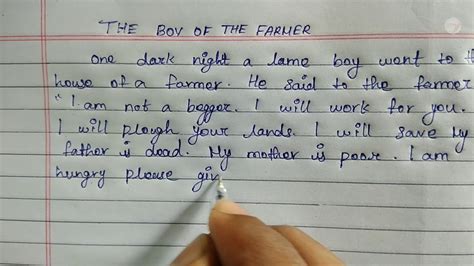 THE BOY OF THE FARMER
one dark night a lame boy went to t
house of a farmer. He said to the farmer
" I am not a begger. I will work for you.
I will plough your lands. I will save my
father is dead. My mother is poor. I am
hungry please giv